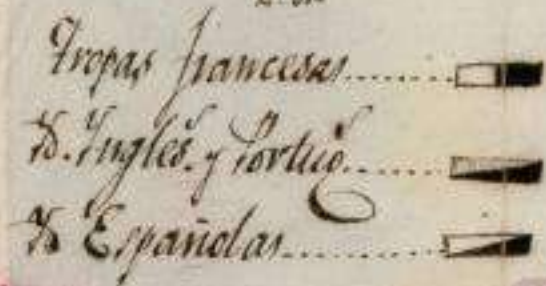 Tropas francesas
Yd. Ingles.s y Portug.s
Yd Españolas